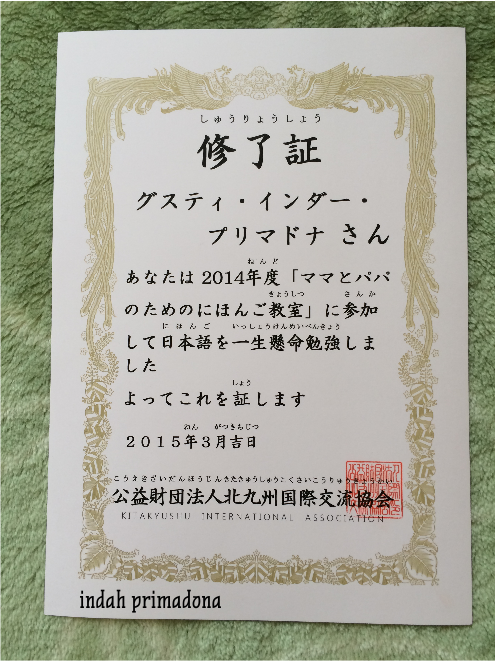 しゅうりょうしょう
修了証
グスティ・インダー・
プリマドナ さん
ねんど
あなたは 2014年度「ママとパパ
きょうしつ さんか
のためのにほんご教室」に参加
にほんご いっしょうけんめいべんきょう
して日本語を一生懸命勉強しま
した
しょう
よってこれを証します
ねん がつきちじつ
2015年3月吉日
こうえきざいだんほうじんきたきゅうしゅうこくさいこうりゅうきょうかい
公益財団法人北九州国際交流協会
KITAKYUSHU INTERNATIONAL ASSOCIATION
indah primadona